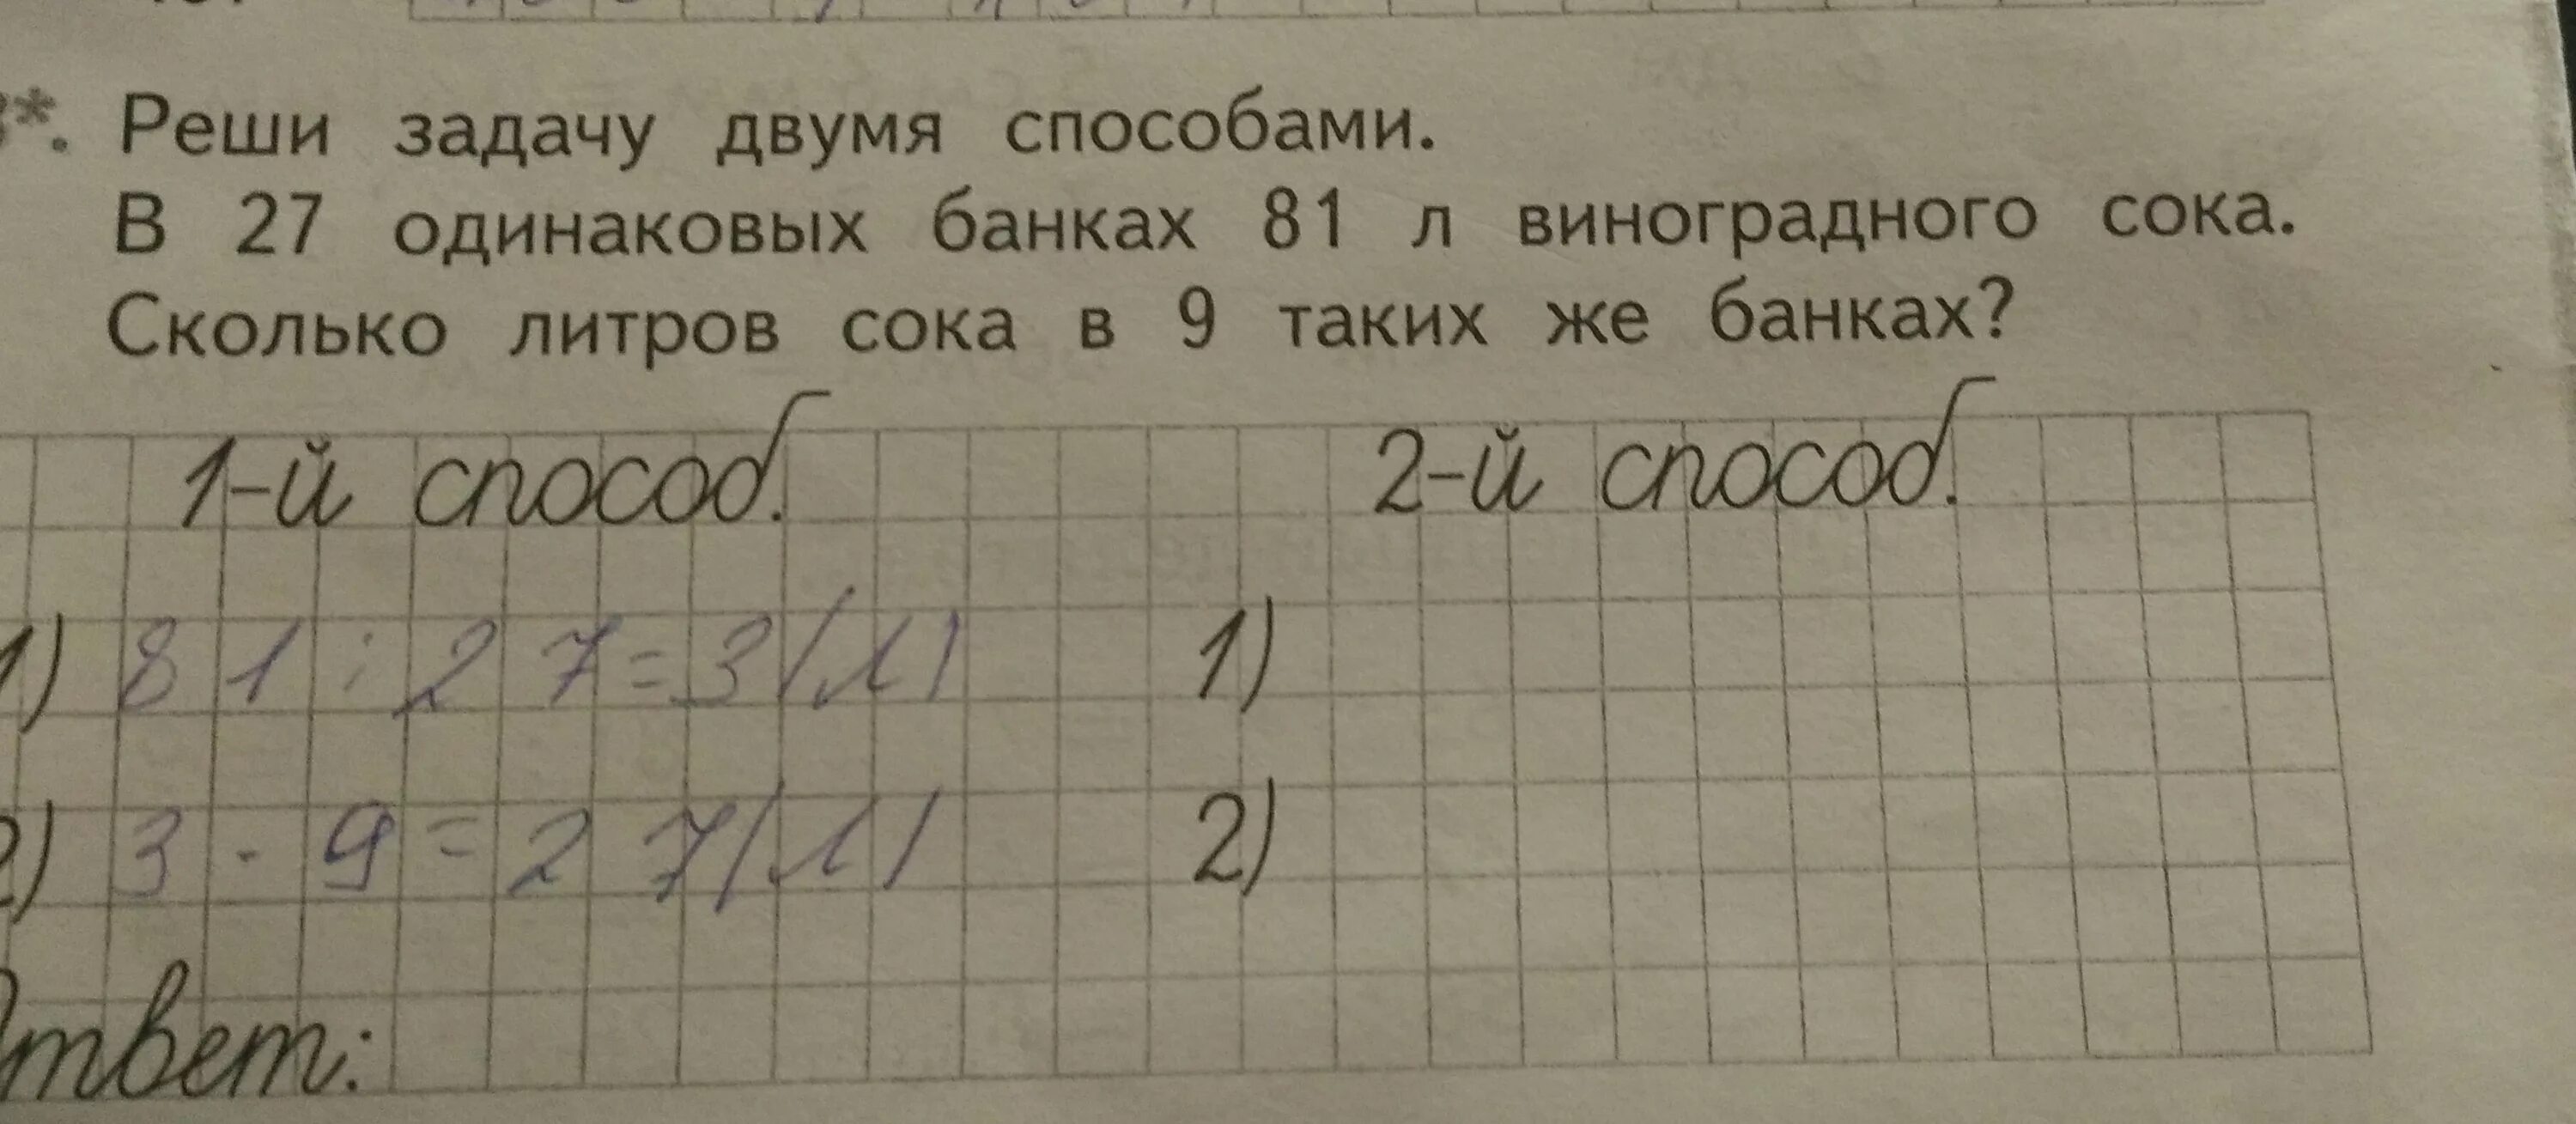 *. Реши задачу двумя способами.
В 27 одинаковых банках 81 л виноградного сока.
Сколько литров сока в 9 таких же банках?
1-й способ. 2-й способ.
1) 81:27=3(л) 1)
2) 3·9=27(л) 2)
Ответ: